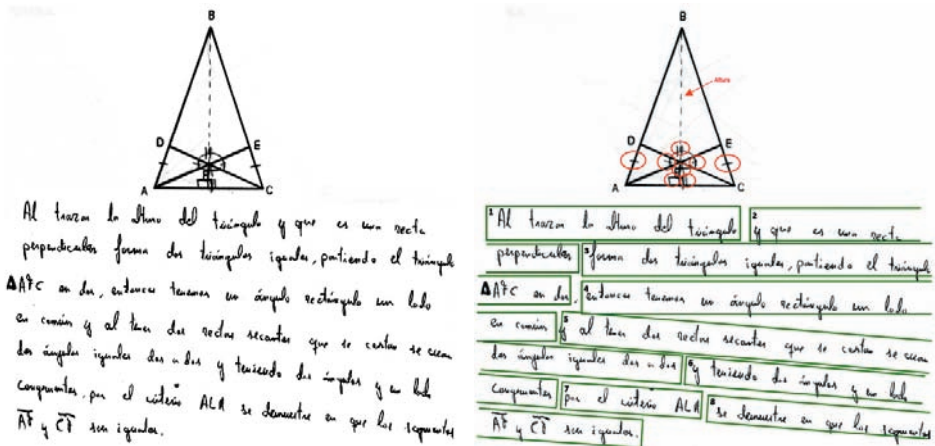 B
D
E
A
C
Al trazar la altura del triángulo y que es una recta
perpendicular forma dos triángulos iguales, partiendo el triángulo
ΔAFC en dos, entonces tenemos un ángulo rectángulo un lado
en común y al tener dos rectas secantes que se cortan se crean
dos ángulos iguales dos a dos y teniendo dos ángulos y un lado
congruentes, por el criterio ALA se demuestra en que los segmentos
AF y CF son iguales.
B
Altura
D
E
A
C
1 Al trazar la altura del triángulo 2 y que es una recta
perpendicular 3 forma dos triángulos iguales, partiendo el triángulo
ΔAFC en dos, 4 entonces tenemos un ángulo rectángulo un lado
en común 5 y al tener dos rectas secantes que se cortan se crean
dos ángulos iguales dos a dos 6 y teniendo dos ángulos y un lado
congruentes 7 por el criterio ALA 8 se demuestra en que los segmentos
AF y CF son iguales.